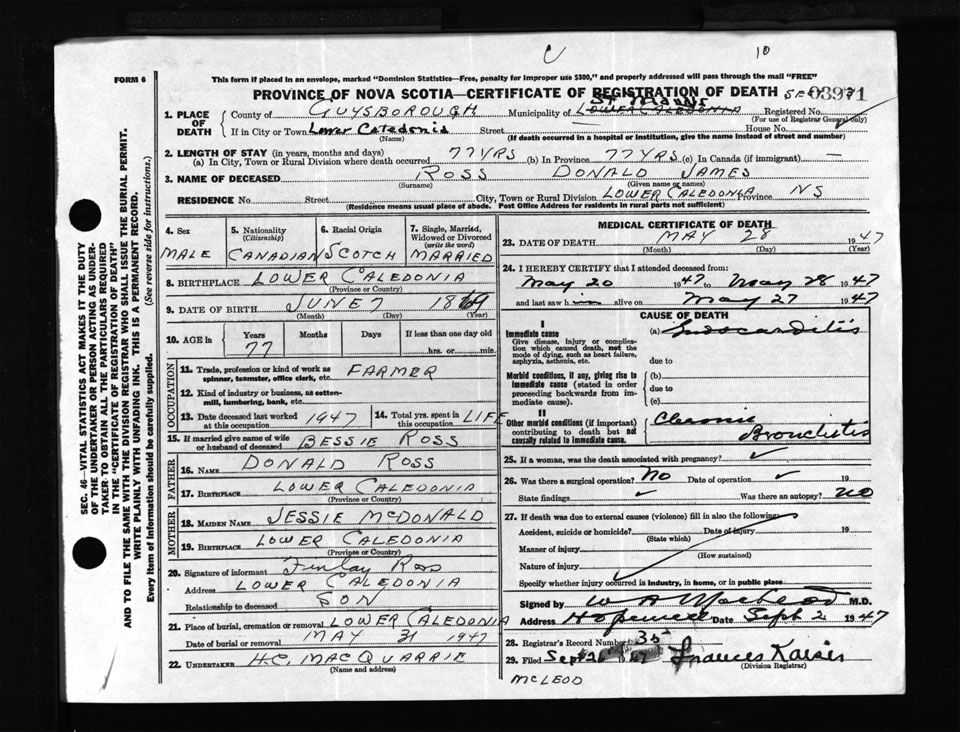 U 10
FORM 6
This form if placed in an envelope, marked "Dominion Statistics—Free, penalty for improper use $300," and properly addressed will pass through the mail "FREE"
PROVINCE OF NOVA SCOTIA—CERTIFICATE OF REGISTRATION OF DEATH 03971
1. PLACE OF DEATH
County of GUYSBOROUGH Municipality of ST MARYS LOWER CALEDONIA Registered No.
(For use of Registrar General only)
If in City or Town Lower Caledonia Street House No.
(Name) (If death occurred in a hospital or institution, give the name instead of street and number)
2. LENGTH OF STAY (in years, months and days)
(a) In City, Town or Rural Division where death occurred 77 YRS (b) In Province 77 YRS (c) In Canada (if immigrant) —
3. NAME OF DECEASED ROSS DONALD JAMES
(Surname) (Given name or names)
RESIDENCE No. Street City, Town or Rural Division LOWER CALEDONIA Province NS
(Residence means usual place of abode. Post Office Address for residents in rural parts not sufficient)
4. Sex MALE
5. Nationality (Citizenship) CANADIAN
6. Racial Origin SCOTCH
7. Single, Married, Widowed or Divorced (write the word) MARRIED
8. BIRTHPLACE LOWER CALEDONIA
(Province or Country)
9. DATE OF BIRTH JUNE 7 1869
(Month) (Day) (Year)
10. AGE in Years Months Days If less than one day old
77 hrs. or min.
OCCUPATION
11. Trade, profession or kind of work as spinner, teamster, office clerk, etc. FARMER
12. Kind of industry or business, as cotton-mill, lumbering, bank, etc.
13. Date deceased last worked at this occupation 1947
14. Total yrs. spent in this occupation LIFE
15. If married give name of wife or husband of deceased BESSIE ROSS
FATHER
16. NAME DONALD ROSS
17. BIRTHPLACE LOWER CALEDONIA
(Province or Country)
MOTHER
18. MAIDEN NAME JESSIE McDONALD
19. BIRTHPLACE LOWER CALEDONIA
(Province or Country)
20. Signature of informant Finlay Ross
Address LOWER CALEDONIA
Relationship to deceased SON
21. Place of burial, cremation or removal LOWER CALEDONIA
Date of burial or removal MAY 31 1947
22. UNDERTAKER H.C. MACQUARRIE
(Name and address)
MEDICAL CERTIFICATE OF DEATH
23. DATE OF DEATH MAY 28 1947
(Month) (Day) (Year)
24. I HEREBY CERTIFY that I attended deceased from:
May 20 1947 to May 28 1947
and last saw him alive on May 27 1947
CAUSE OF DEATH
I
Immediate cause
Give disease, injury or complication which caused death, not the mode of dying, such as heart failure, asphyxia, asthenia, etc.
(a) Endocarditis
due to
Morbid conditions, if any, giving rise to immediate cause (stated in order proceeding backwards from immediate cause).
(b)
due to
(c)
II
Other morbid conditions (if important) contributing to death but not causally related to immediate cause.
Chronic Bronchitis
25. If a woman, was the death associated with pregnancy?
26. Was there a surgical operation? No Date of operation 19
State findings Was there an autopsy? NO
27. If death was due to external causes (violence) fill in also the following:
Accident, suicide or homicide? Date of injury 19
(State which)
Manner of injury
(How sustained)
Nature of injury
Specify whether injury occurred in industry, in home, or in public place
Signed by W A MacLeod M.D.
Address Hopewell Date Sept 2 1947
28. Registrar's Record Number 35
29. Filed Sept 2 1947 Frances Kaiser
(Division Registrar)
McLEOD
SEC. 46—VITAL STATISTICS ACT MAKES IT THE DUTY
OF THE UNDERTAKER OR PERSON ACTING AS UNDER-
TAKER TO OBTAIN ALL THE PARTICULARS REQUIRED
IN THE "CERTIFICATE OF REGISTRATION OF DEATH"
AND TO FILE THE SAME WITH THE DIVISION REGISTRAR WHO SHALL ISSUE THE BURIAL PERMIT.
WRITE PLAINLY WITH UNFADING INK. THIS IS A PERMANENT RECORD.
Every item of information should be carefully supplied. (See reverse side for instructions.)